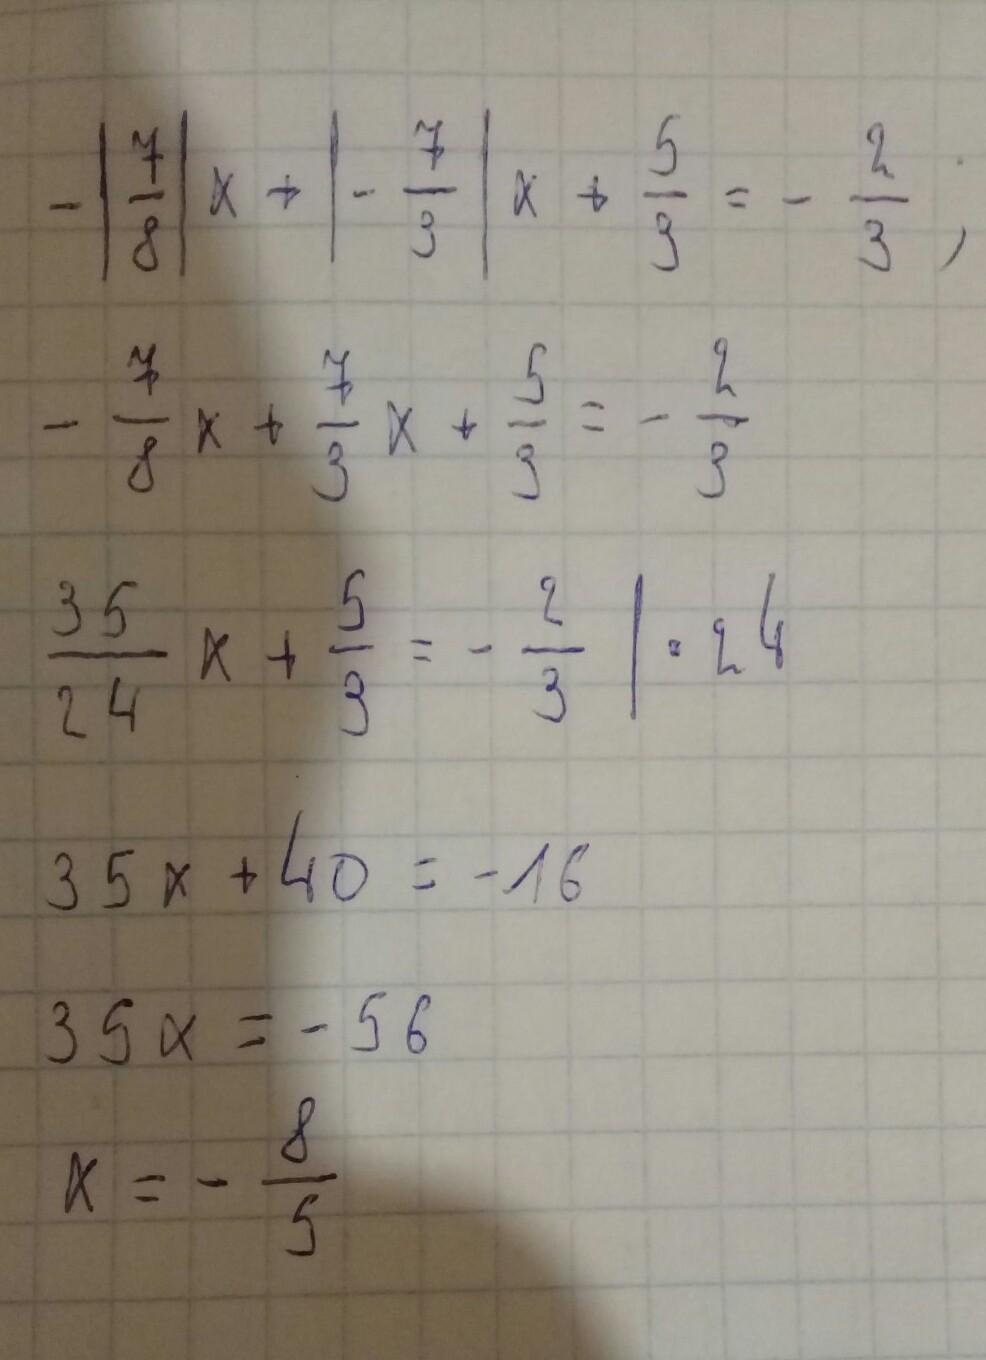 - |7/8| x + |- 7/3| x + 5/3 = - 2/3 ;
- 7/8 x + 7/3 x + 5/3 = - 2/3
35/24 x + 5/3 = - 2/3 | · 24
35x + 40 = -16
35x = - 56
x = - 8/5